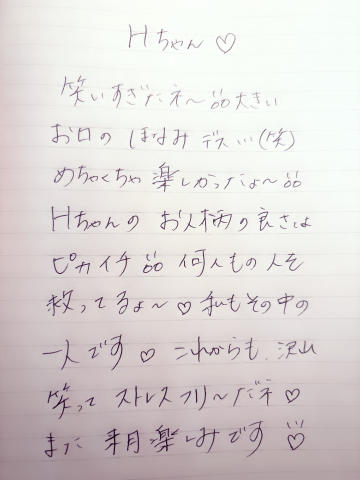 Hちゃん♡
笑いすぎたネ〜!!大きい
お口の ほなみ デス…(笑)
めちゃくちゃ楽しかったよ〜!!
Hちゃんの お人柄の良さは
ピカイチ!!何人もの人を
救ってるよ〜♡私もその中の
一人です♡これからも、沢山
笑って ストレスフリ〜だネ♡
また 来月楽しみです